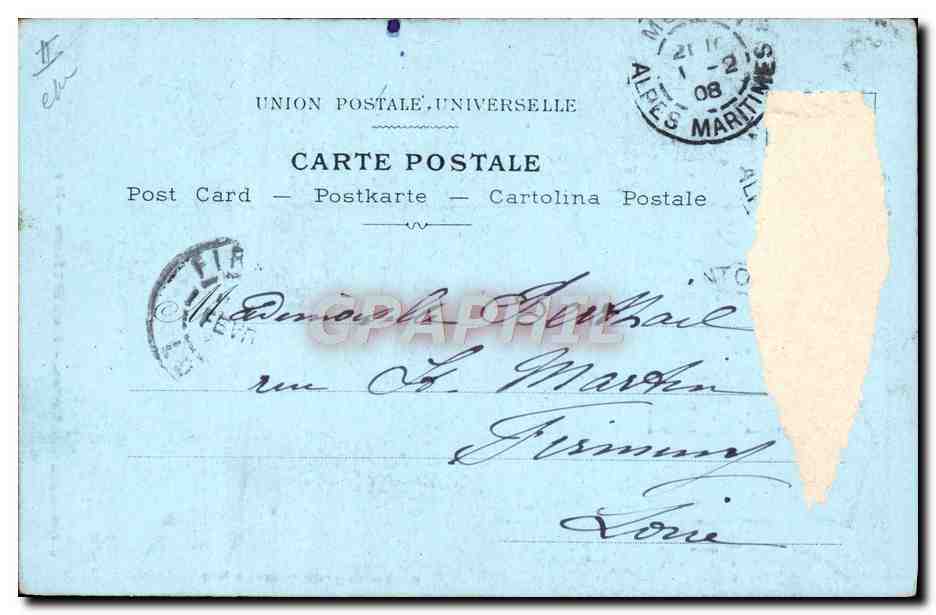 21 10
1 - 2
08
ALPES MARITIMES
UNION POSTALE UNIVERSELLE
CARTE POSTALE
Post Card — Postkarte — Cartolina Postale
FIR
FEVR
© GRAPHIL
Mademoiselle
rue St. Martin
Firminy
Loire